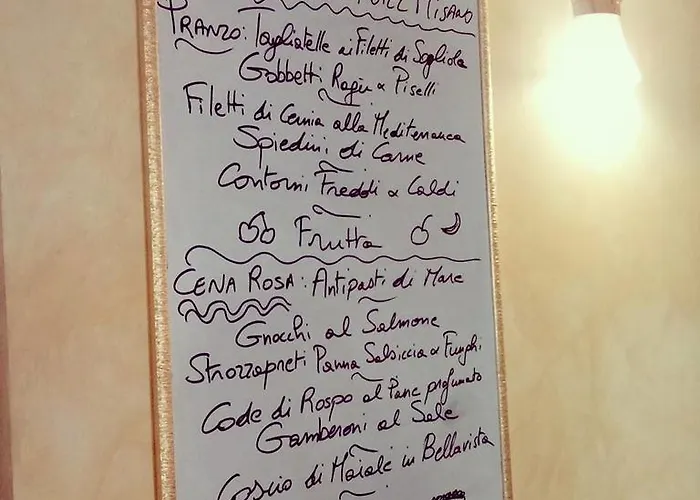 Misano
PRANZO: Tagliatelle ai Filetti di Sogliola
Gobbetti Ragù e Piselli
Filetti di Cernia alla Mediterranea
Spiedini di Carne
Contorni Freddi e Caldi
Frutta
CENA ROSA: Antipasti di Mare
Gnocchi al Salmone
Strozzapreti Panna Salsiccia e Funghi
Code di Rospo al Pane profumato
Gamberoni al Sale
Coscio di Maiale in Bellavista